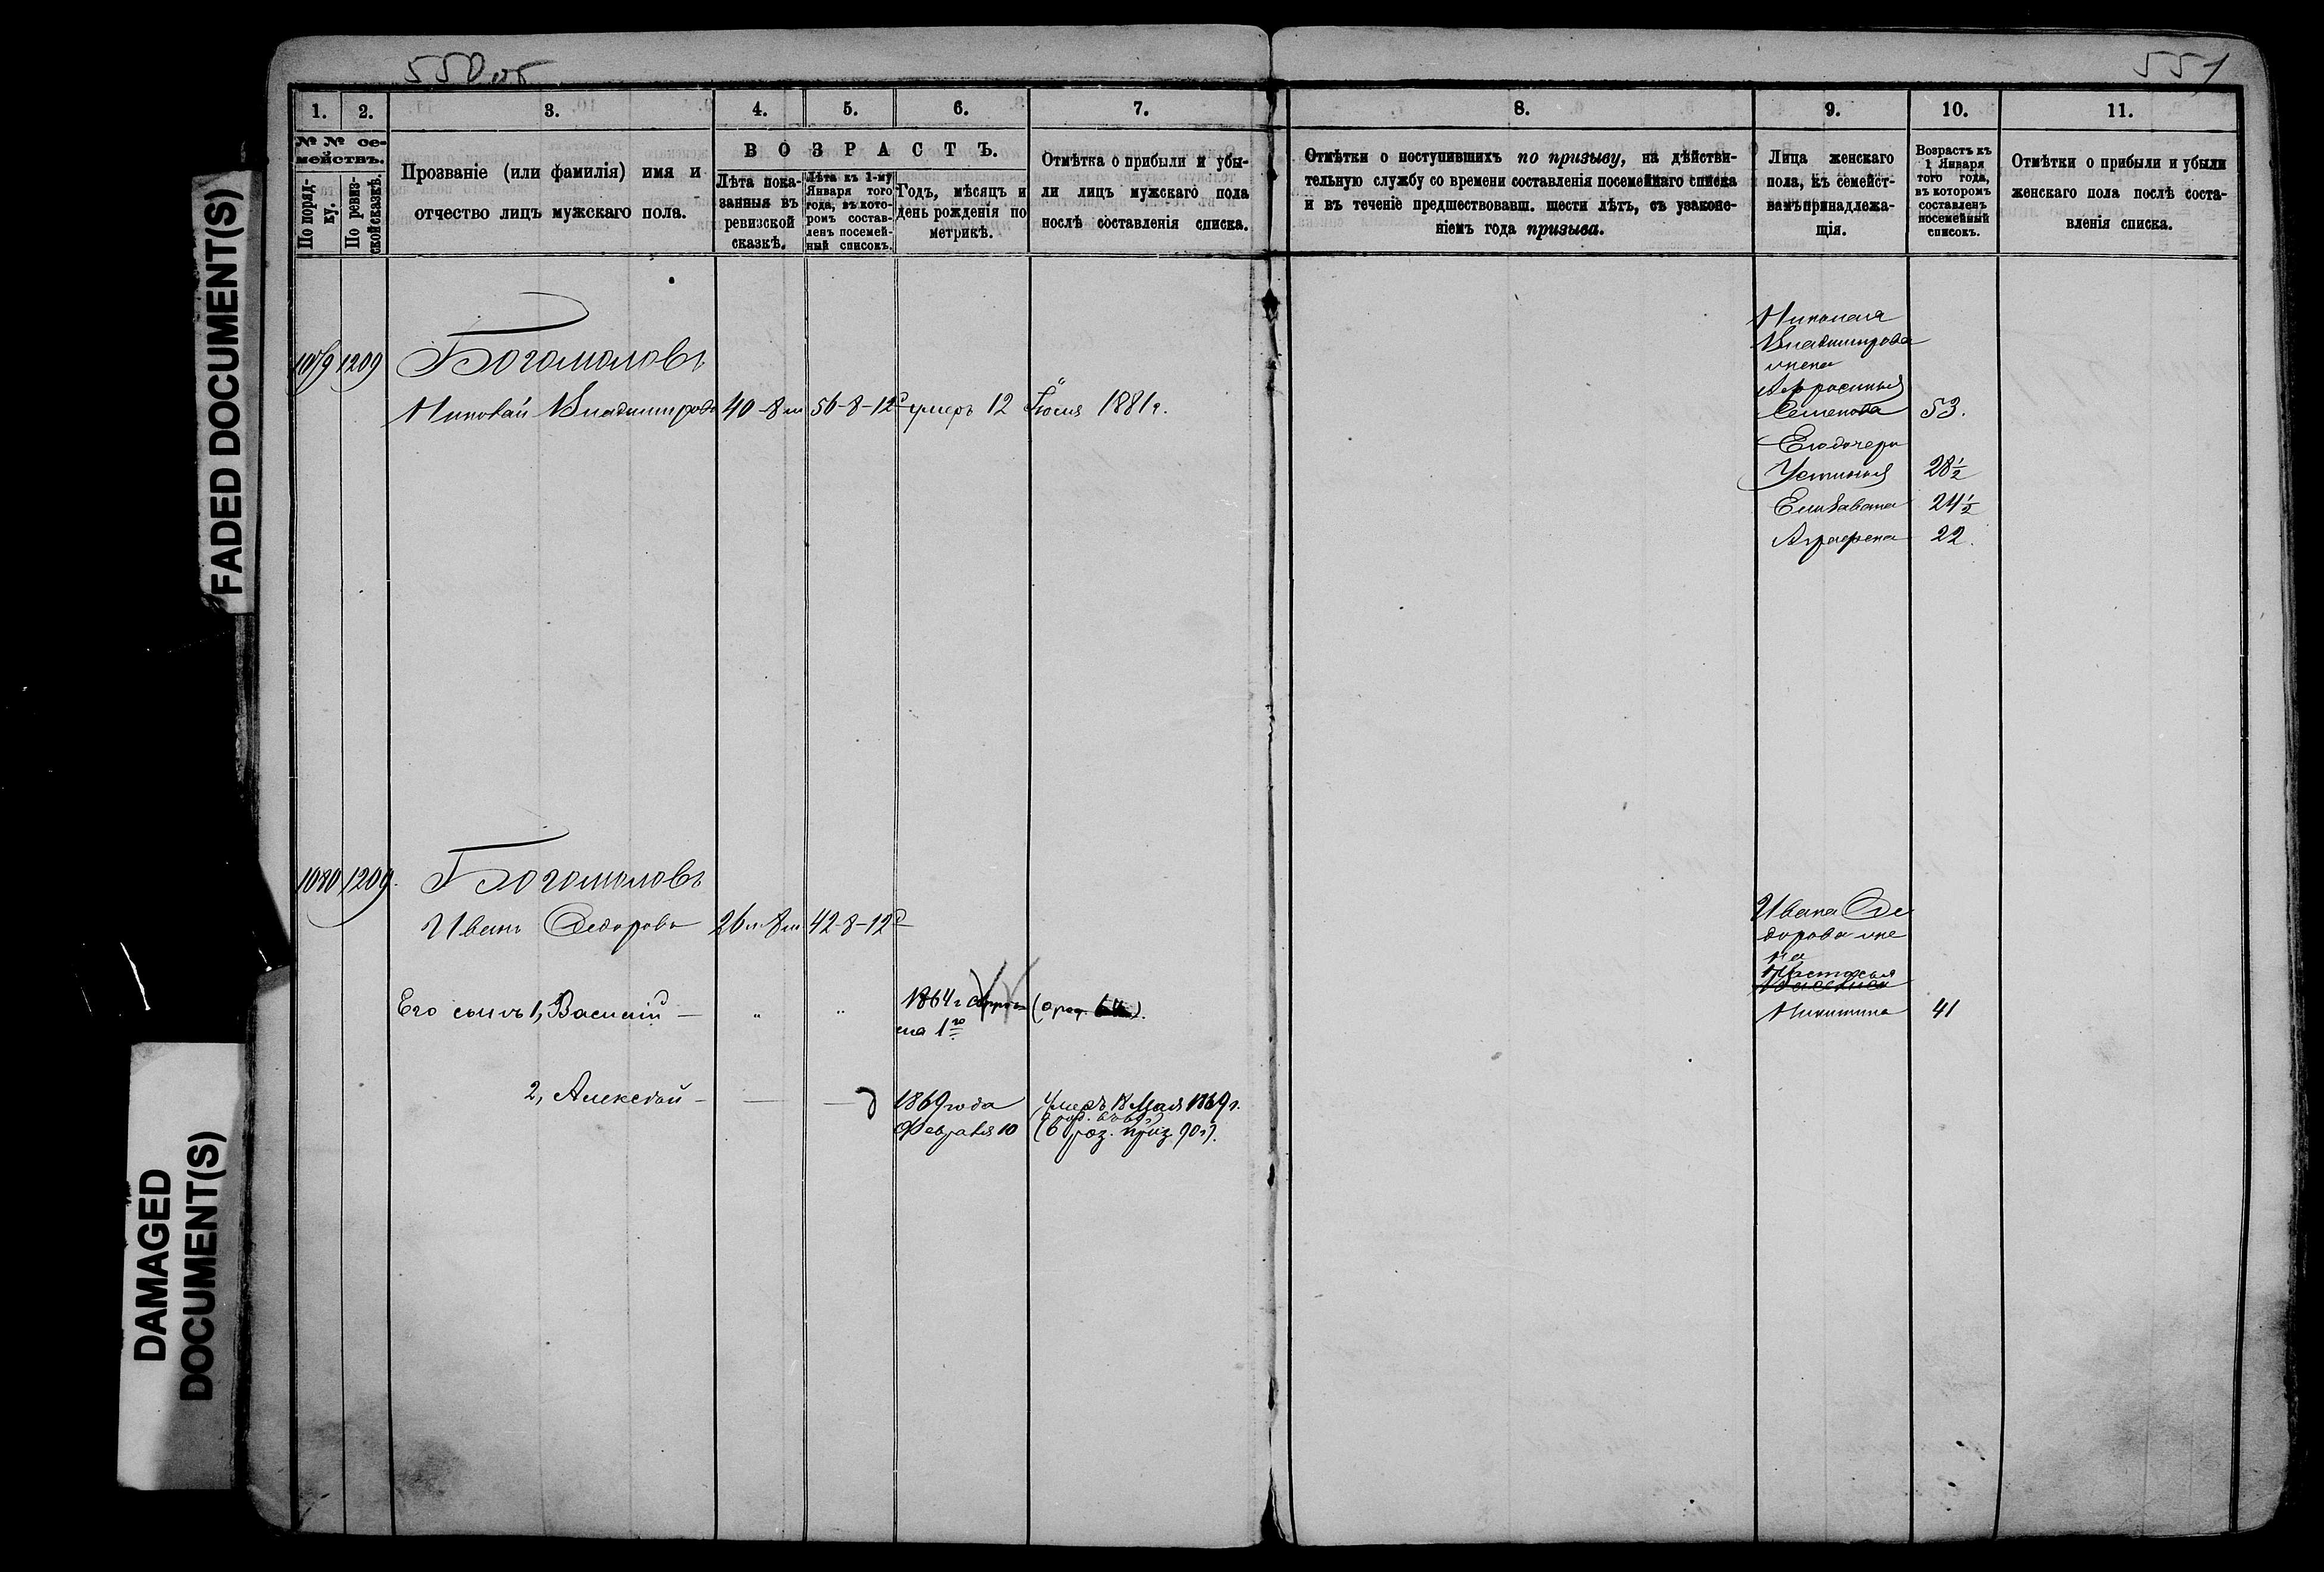 550 об
551
FADED DOCUMENT(S)
DAMAGED
DOCUMENT(S)
1. 2. 3. 4. 5. 6. 7.
№ № се-
мействъ.
По поряд-
ку.
По ревиз-
ской сказкѣ.
Прозваніе (или фамилія) имя и
отчество лицъ мужскаго пола.
ВОЗРАСТЪ.
Лѣта пока-
занныя въ
ревизской
сказкѣ.
Лѣта къ 1-му
Января того
года, въ кото-
ромъ состав-
ленъ посемей-
ный списокъ.
Годъ, мѣсяцъ и
день рожденія по
метрикѣ.
Отмѣтка о прибыли и убы-
ли лицъ мужскаго пола
послѣ составленія списка.
8. 9. 10. 11.
Отмѣтки о поступившихъ по призыву, на дѣйстви-
тельную службу со времени составленія посемейнаго списка
и въ теченіе предшествовавш. шести лѣтъ, съ узаконе-
ніемъ года призыва.
Лица женскаго
пола, къ семейст-
вамъ принадлежа-
щія.
Возрастъ къ
1 Января
того года,
въ которомъ
составленъ
посемейный
списокъ.
Отмѣтки о прибыли и убыли
женскаго пола послѣ соста-
вленія списка.
1079 1209 Богомоловъ
Николай Владимировъ 40-8м 56-8-12д умеръ 12 Іюня 1881г.
Николая
Владимирова
жена
Афросинья
Семенова 53.
Его дочери
Устинья 28½
Елизавета 24½
Аграфена 22.
1080 1209. Богомоловъ
Иванъ Федоровъ 26л 8м 42-8-12д
Его сынъ 1, Василій — " " 1864г
ла 1го
2, Алексѣй — — — 1869 года Умеръ 18 Мая 1869г.
Февраля 10
Ивана Фе
дорова же
на
Никитина 41